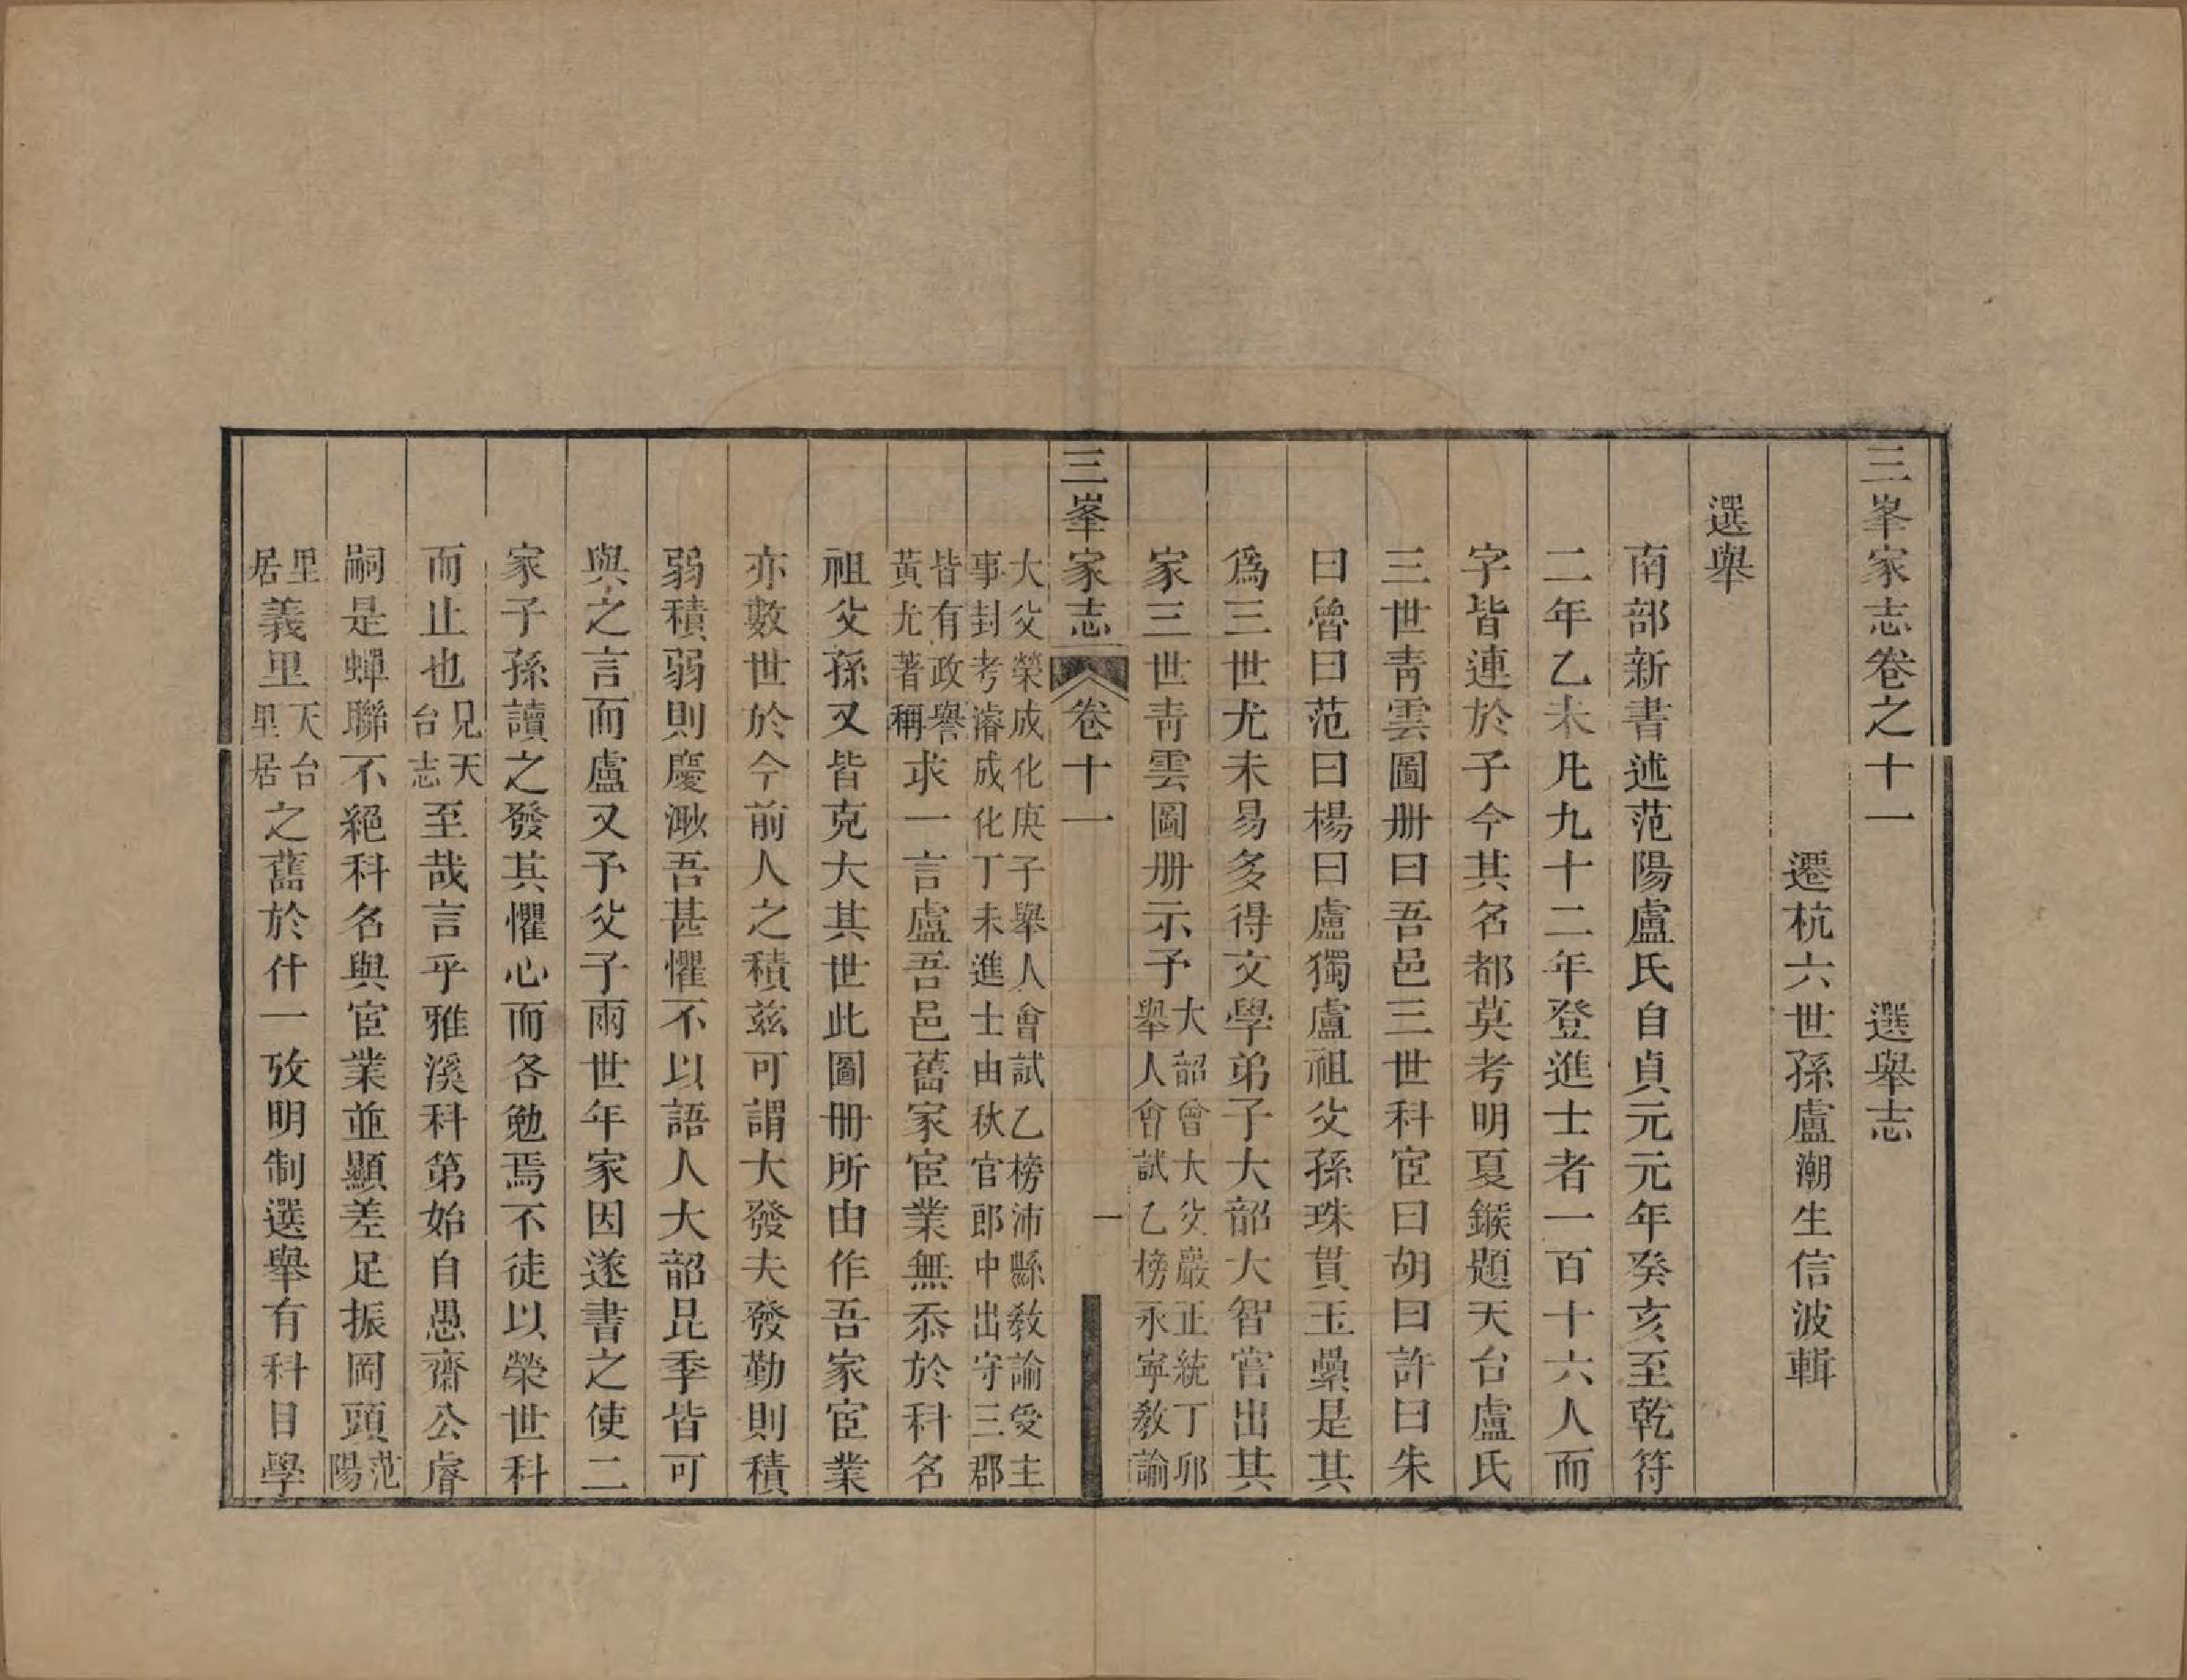 三峯家志卷之十一　選舉志
遷杭六世孫盧潮生信波輯
選舉
南部新書述范陽盧氏自貞元元年癸亥至乾符
二年乙未凡九十二年登進士者一百十六人而
字皆連於子今其名都莫考明夏鍭題天台盧氏
三世青雲圖册曰吾邑三世科宦曰胡曰許曰朱
曰魯曰范曰楊曰盧獨盧祖父孫珠貫玉纍是其
爲三世尤未易多得文學弟子大韶大智嘗出其
家三世青雲圖册示予大韶曾大父嚴正統丁卯
舉人會試乙榜永寧教諭
三峯家志　卷十一　一
大父榮成化庚子舉人會試乙榜沛縣教諭受主
事封考濬成化丁未進士由秋官郎中出守三郡
皆有政譽
黃尤著稱求一言盧吾邑舊家宦業無忝於科名
祖父孫又皆克大其世此圖册所由作吾家宦業
亦數世於今前人之積兹可謂大發夫發勤則積
弱積弱則慶澌吾甚懼不以語人大韶昆季皆可
與之言而盧又予父子兩世年家因遂書之使二
家子孫讀之發其懼心而各勉焉不徒以榮世科
而止也見天
台志至哉言乎雅溪科第始自愚齋公睿
嗣是蟬聯不絕科名與宦業並顯差足振岡頭范
陽
里
居義里天台
里居之舊於什一攷明制選舉有科目學